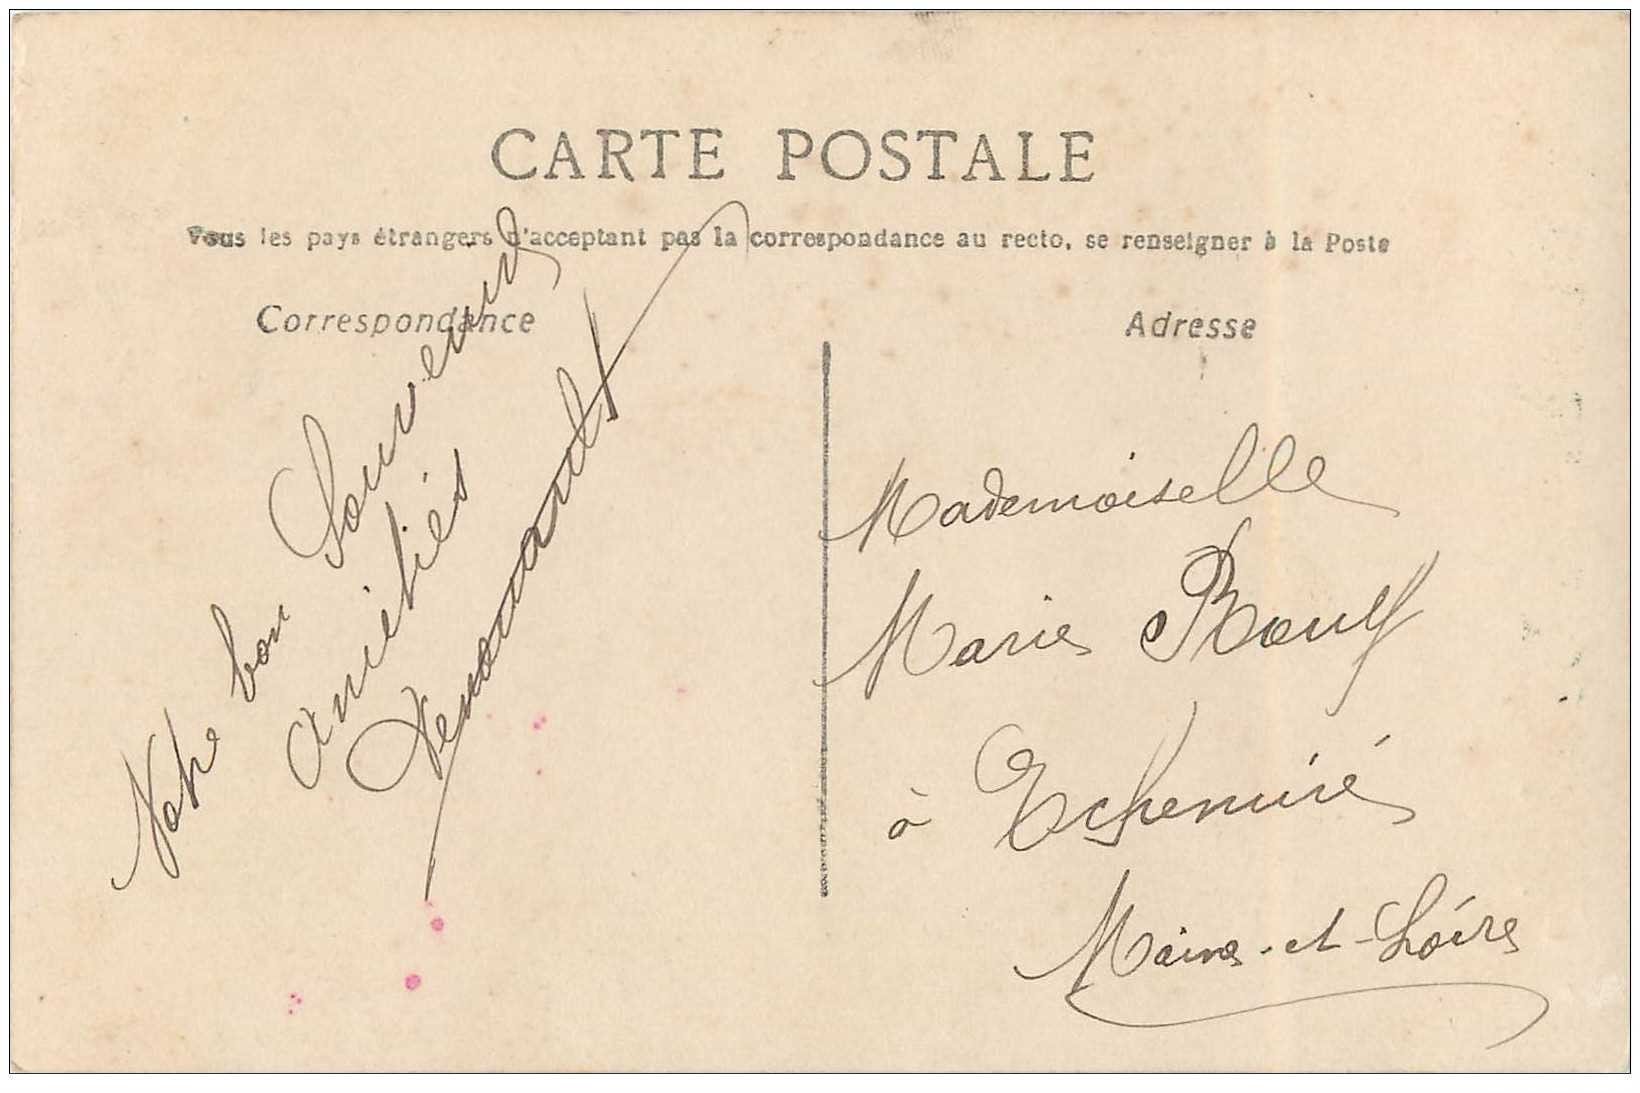 CARTE POSTALE
Tous les pays étrangers n'acceptant pas la correspondance au recto, se renseigner à la Poste
Correspondance
Adresse
Notre bon Souvenir
Amitiés
Mademoiselle
Marie
à Echemiré
Maine-et-Loire